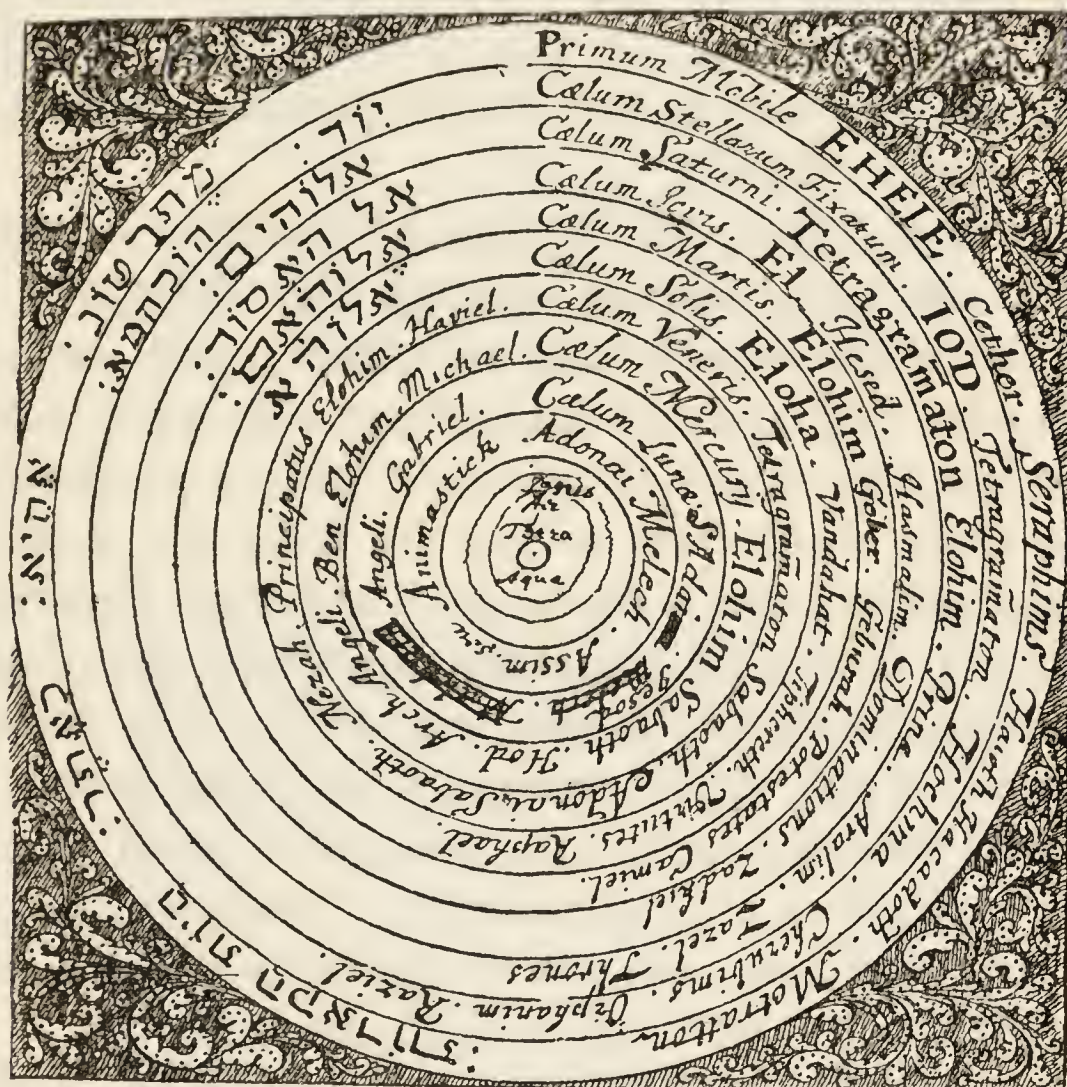 Primum Mobile EHEIE. Cether. Seraphims. Haioth Hacadoth.
Cælum Stellarum Fixatum. IOD. Tetragram̃aton. Hochma. Cherubims. Orphanim. Raziel.
Cælum Saturni. Tetragram̃aton Elohim. Prina. Aralim. Zazel. Thrones
Cælum Jovis. El Hesed. Hasmadim. Dominations. Zadkiel
Cælum Martis. Elohim Goher Geburah. Potestates Camiel.
Cælum Solis. Eloha. Vandahat. Tiphereth. Virtutes. Raphael.
Cælum Veneris. Tetragram̃aton Sabaoth. Adonai Sabaoth. Nezah. Principatus Elohim. Haniel.
Cælum Mercurij. Elohim Sabaoth. Hod. Arch Angeli. Ben Elohim. Michael.
Cælum Lunæ. SAdai Jesod Angeli. Gabriel.
Adonai Melech. Assim. seu Animastick
Ignis
Air
Terra
Aqua
יוד:
אלוהים:
אל
אלוה א